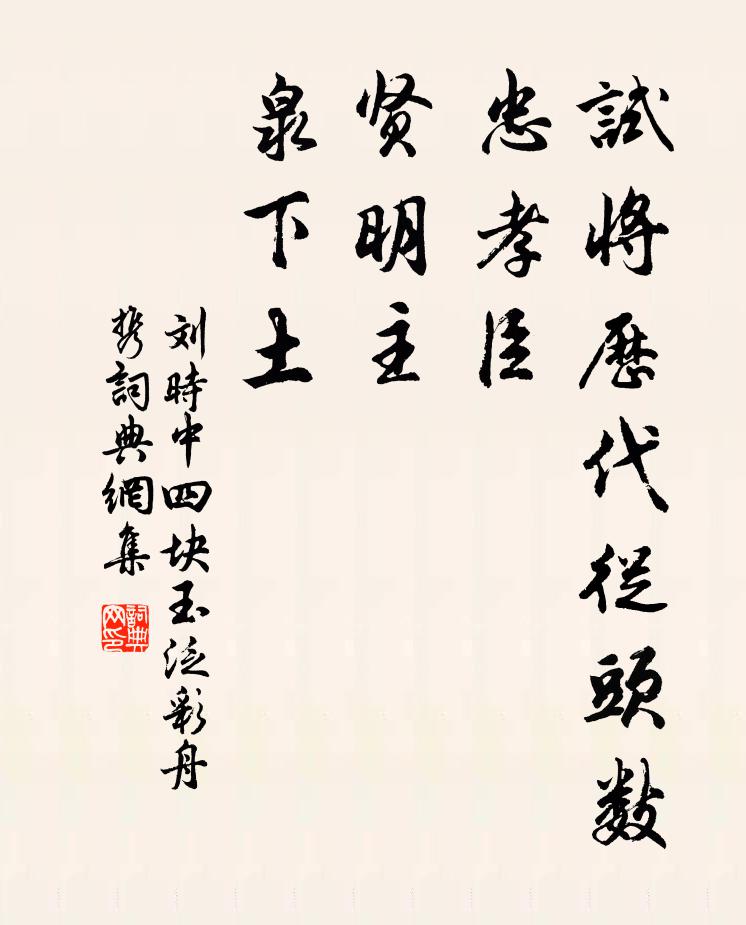 試將歷代從頭數
忠孝臣
贤明主
泉下土
刘時中四块玉泛彩舟
携詞典網集
詞典网印